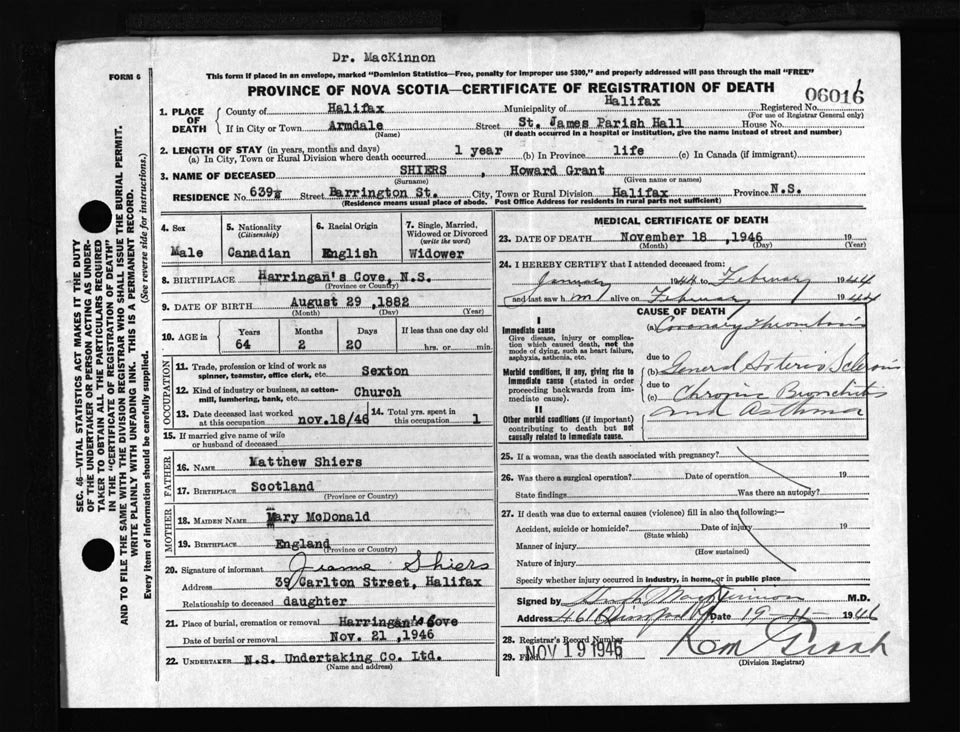 Dr. MacKinnon
FORM 6
This form if placed in an envelope, marked "Dominion Statistics—Free, penalty for improper use $300," and properly addressed will pass through the mail "FREE"
PROVINCE OF NOVA SCOTIA—CERTIFICATE OF REGISTRATION OF DEATH
06016
1. PLACE OF DEATH
County of Halifax Municipality of Halifax Registered No.
(For use of Registrar General only)
If in City or Town Armdale Street St. James Parish Hall House No.
(Name) (If death occurred in a hospital or institution, give the name instead of street and number)
2. LENGTH OF STAY (in years, months and days)
(a) In City, Town or Rural Division where death occurred 1 year (b) In Province life (c) In Canada (if immigrant)
3. NAME OF DECEASED SHIERS, Howard Grant
(Surname) (Given name or names)
RESIDENCE No. 639½ Street Barrington St. City, Town or Rural Division Halifax Province N.S.
(Residence means usual place of abode. Post Office Address for residents in rural parts not sufficient)
4. Sex
Male
5. Nationality
(Citizenship)
Canadian
6. Racial Origin
English
7. Single, Married, Widowed or Divorced
(write the word)
Widower
8. BIRTHPLACE Harringan's Cove, N.S.
(Province or Country)
9. DATE OF BIRTH August 29, 1882
(Month) (Day) (Year)
10. AGE in
Years Months Days If less than one day old
64 2 20 hrs. or min.
OCCUPATION
11. Trade, profession or kind of work as spinner, teamster, office clerk, etc. Sexton
12. Kind of industry or business, as cotton-mill, lumbering, bank, etc. Church
13. Date deceased last worked at this occupation nov.18/46
14. Total yrs. spent in this occupation 1
15. If married give name of wife or husband of deceased
FATHER
16. NAME Matthew Shiers
17. BIRTHPLACE Scotland
(Province or Country)
MOTHER
18. MAIDEN NAME Mary McDonald
19. BIRTHPLACE England
(Province or Country)
20. Signature of informant Shiers
Address 39 Carlton Street, Halifax
Relationship to deceased daughter
21. Place of burial, cremation or removal Harringan's Cove
Date of burial or removal Nov. 21, 1946
22. UNDERTAKER N.S. Undertaking Co. Ltd.
(Name and address)
MEDICAL CERTIFICATE OF DEATH
23. DATE OF DEATH November 18, 1946 19
(Month) (Day) (Year)
24. I HEREBY CERTIFY that I attended deceased from:
January 1944 to February 1944
and last saw h m alive on February 1944
CAUSE OF DEATH
I
Immediate cause
Give disease, injury or complication which caused death, not the mode of dying, such as heart failure, asphyxia, asthenia, etc.
(a) Coronary Thrombosis
due to
Morbid conditions, if any, giving rise to immediate cause (stated in order proceeding backwards from immediate cause).
General Arterio Sclerosis
due to
(c) Chronic Bronchitis
and Asthma
II
Other morbid conditions (if important) contributing to death but not causally related to immediate cause.
25. If a woman, was the death associated with pregnancy?
26. Was there a surgical operation? Date of operation 19
State findings Was there an autopsy?
27. If death was due to external causes (violence) fill in also the following:—
Accident, suicide or homicide? Date of injury 19
(State which)
Manner of injury
(How sustained)
Nature of injury
Specify whether injury occurred in industry, in home, or in public place
Signed by Hugh MacKinnon M.D.
Address 461 Date 19-11- 1946
28. Registrar's Record Number
29. NOV 19 1946
(Division Registrar)
SEC. 46—VITAL STATISTICS ACT MAKES IT THE DUTY
OF THE UNDERTAKER OR PERSON ACTING AS UNDER-
TAKER TO OBTAIN ALL THE PARTICULARS REQUIRED
IN THE "CERTIFICATE OF REGISTRATION OF DEATH"
AND TO FILE THE SAME WITH THE DIVISION REGISTRAR WHO SHALL ISSUE THE BURIAL PERMIT.
WRITE PLAINLY WITH UNFADING INK. THIS IS A PERMANENT RECORD.
Every item of information should be carefully supplied. (See reverse side for instructions.)